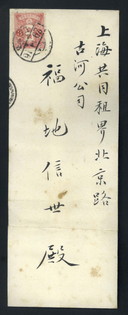 上海共同租界北京路
古河公司
福地信世殿